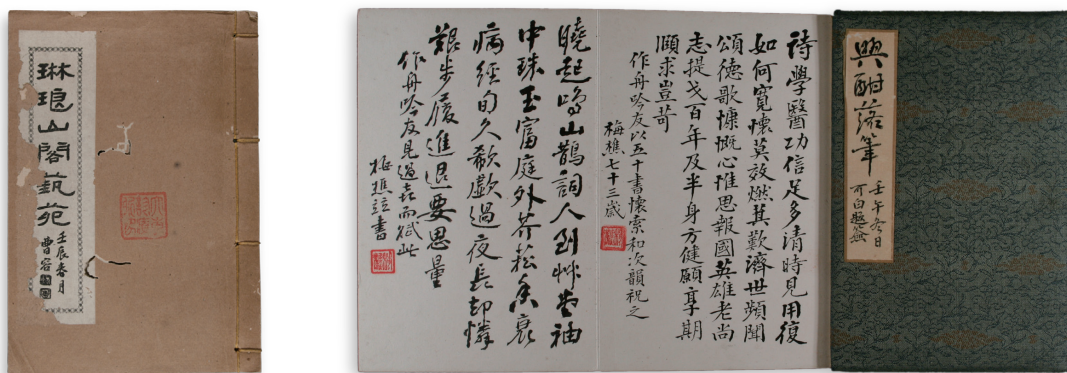 琳琅山閣藝苑
壬辰春月
曹容
興酣落筆
壬午冬日
可白題簽
詩學醫功信足多清時見用復
如何寬懷莫效燃萁歎濟世頻聞
頌德歌慷慨心惟思報國英雄老尚
志提戈百年及半身方健願享期
頤求豈苛
作舟吟友以五十書懷索和次韻祝之
梅樵七十三歲
曉起鳴山鵲詞人到艸堂袖
中珠玉富庭外芥菘香衰
病經旬久欷歔過夜長却憐
艱步履進退要思量
作舟吟友見過喜而賦此
梅樵並書